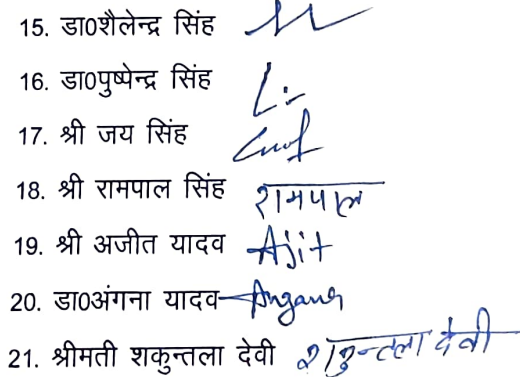 15. डा0शैलेन्द्र सिंह
16. डा0पुष्पेन्द्र सिंह
17. श्री जय सिंह
18. श्री रामपाल सिंह रामपाल
19. श्री अजीत यादव Ajit
20. डा0अंगना यादव Angana
21. श्रीमती शकुन्तला देवी शकुन्तला देवी